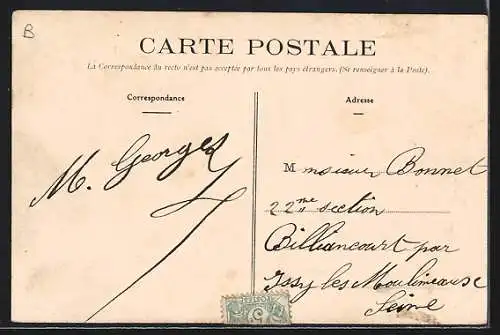 B
CARTE POSTALE
La Correspondance au recto n'est pas acceptée par tous les pays étrangers. (Se renseigner à la Poste).
Correspondance
Adresse
M. Georges
Monsieur Bonnet
22me section
Billiancourt par
Issy les Moulineaux
Seine